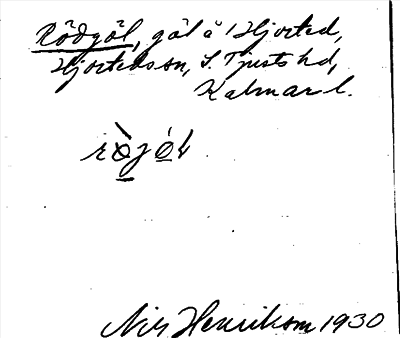 Rödgöl, göl å Hjorted,
Hjorteds sn, S. Tjusts hd,
Kalmar l.
Nils Henrikson 1930